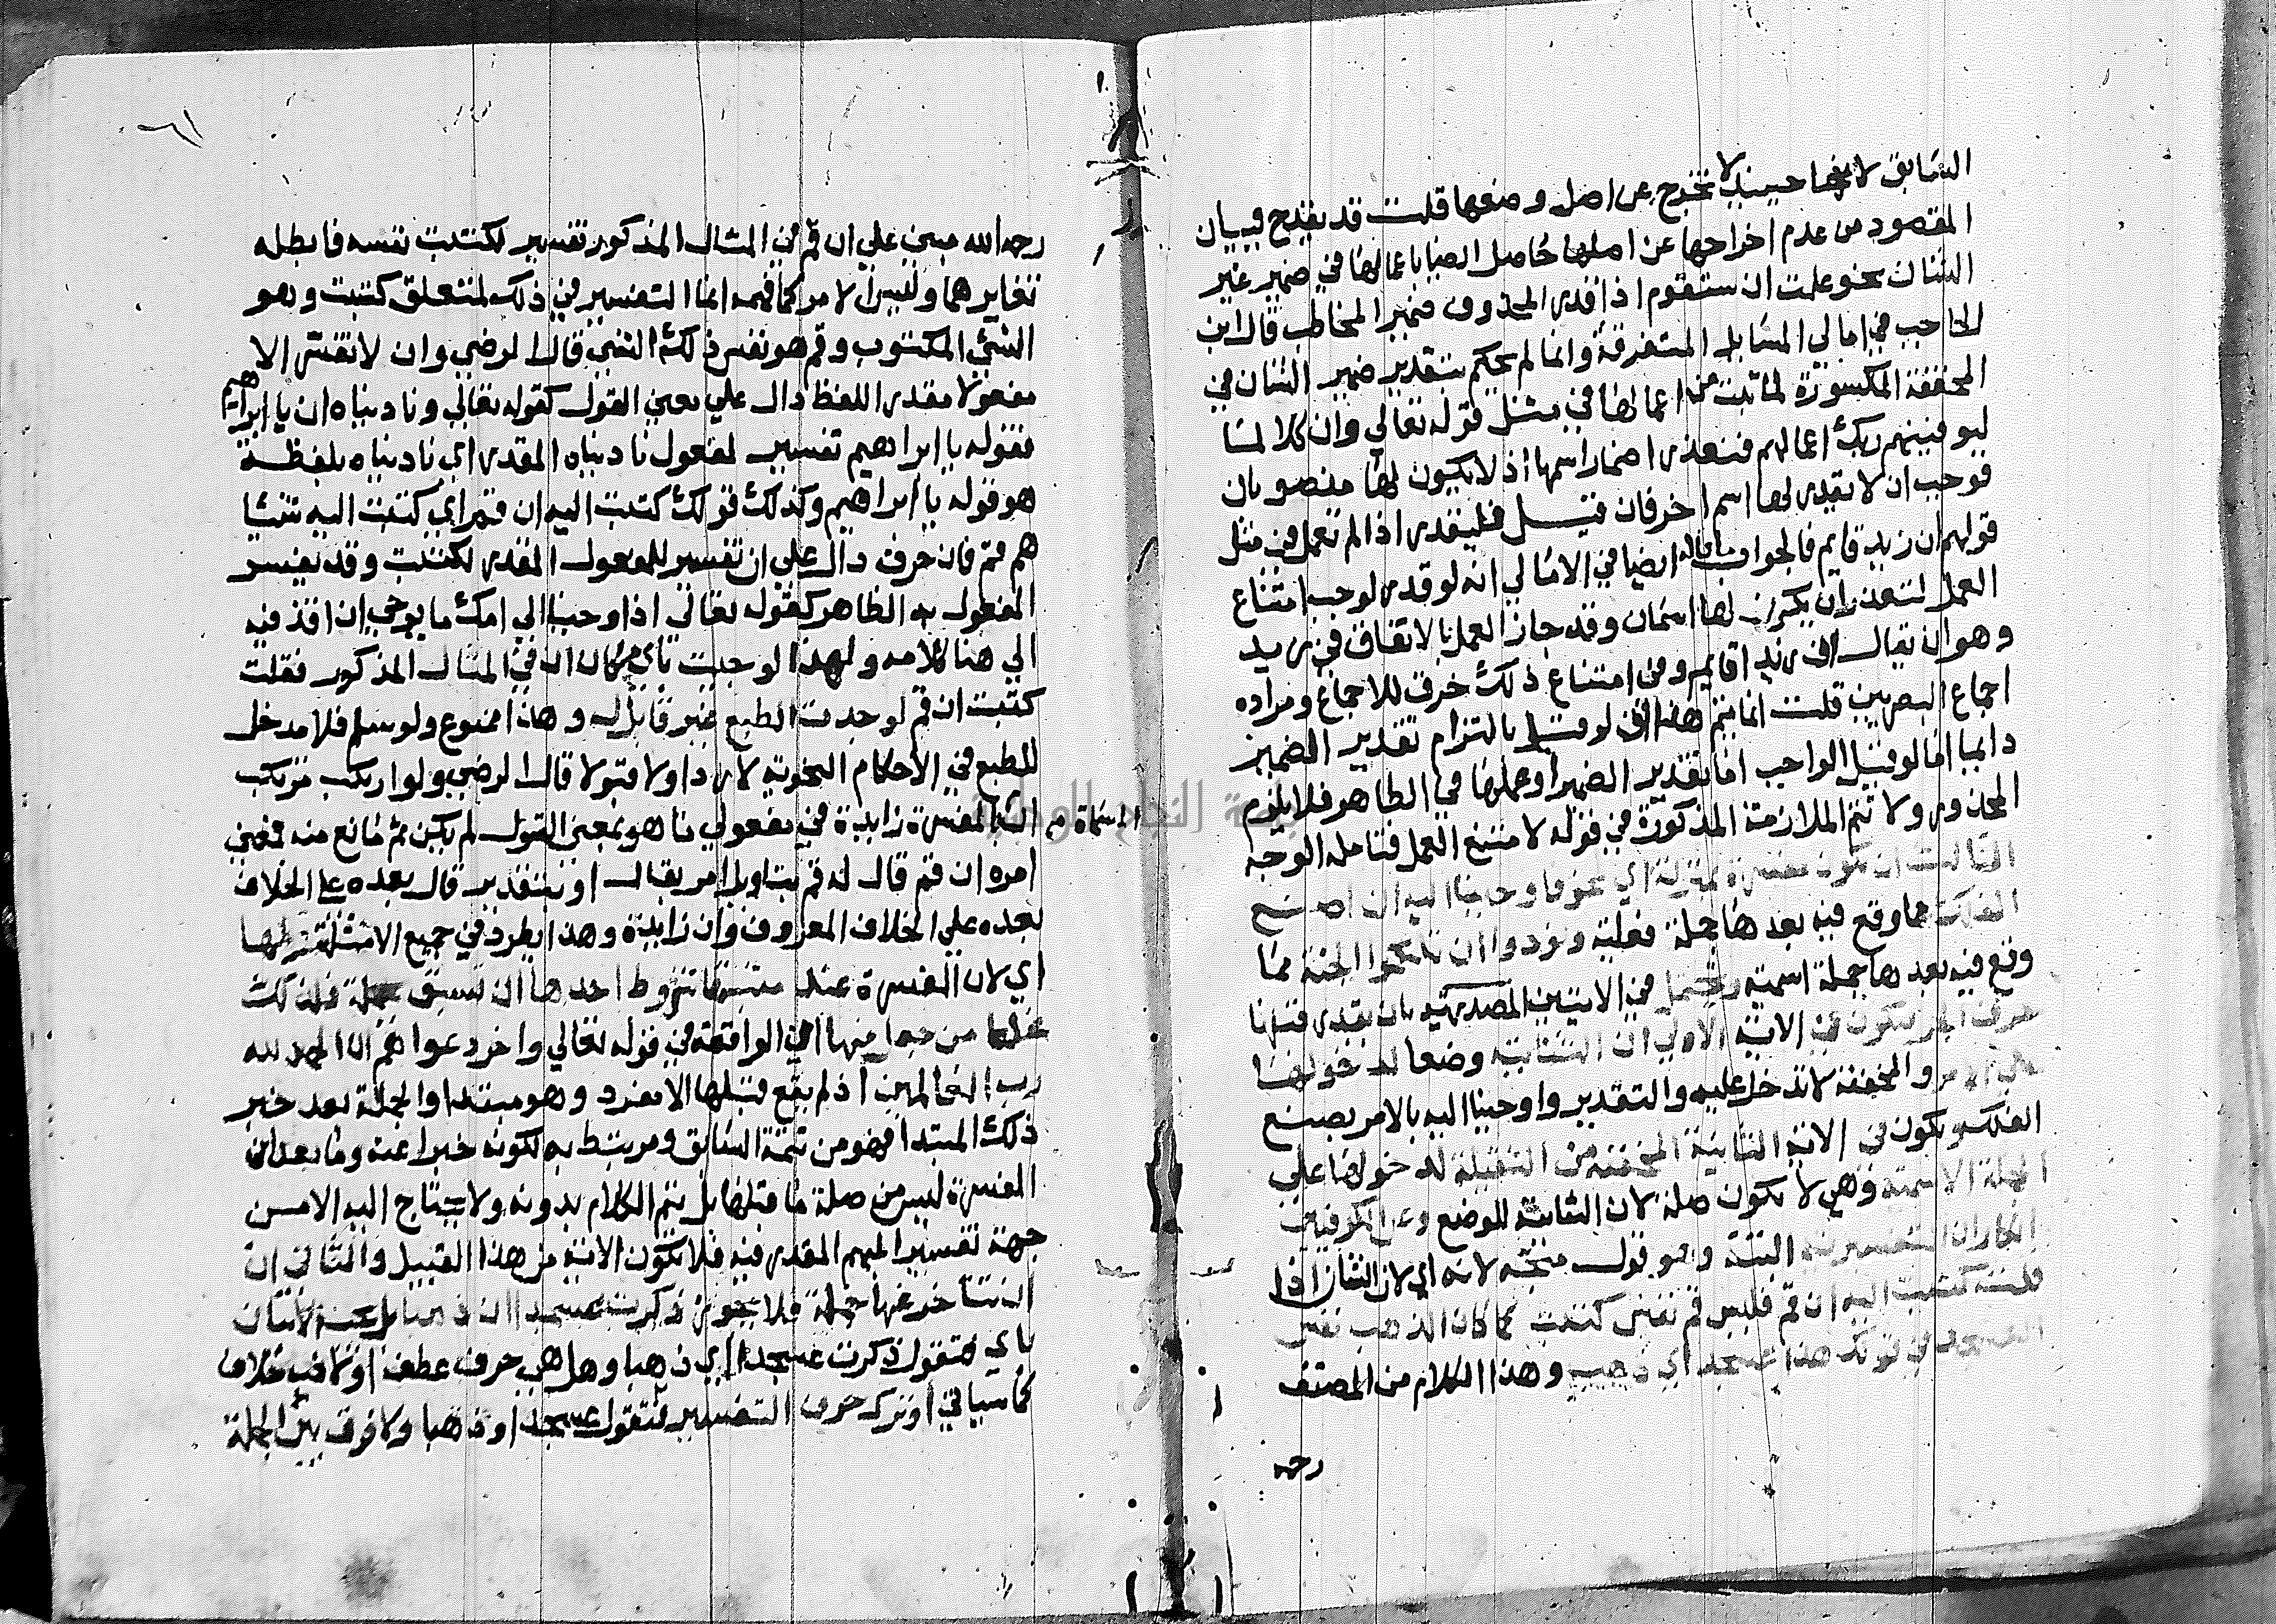 السابق لانها حينيذ لا تخرج عن اصل وضعها قلت قد يقدح في بيان
المقصود من عدم اخراجها عن اصلها حاصل ايضا باعمالها في ضمير غير
الشان نحو علمت ان ستقوم اذا قدر المحذوف ضمير المخاطب قال ابن
الحاجب في امالي المسايل المتفرقة وانما لم يحكم بتقدير ضمير الشان في
المخففة المكسورة لما ثبت من اعمالها في مثل قوله تعالي وان كلا لما
ليوفينهم ربك اعمالهم فتعذر اضمار اسمها اذ لا يكون لها منصوبان
فوجب ان لا يقدر لها اسم اخر فان قيل فليقدر اذا لم تعمل في مثل
قولهم ان زيد قايم فالجواب ما قاله ايضا في الامالي انه لو قدر لوجب امتناع
العمل لتعذر ان يكون لها اسمان وقد جاز العمل بالاتفاق في زيد
وهو ان يقال ان زيدا قايم وفي امتناع ذلك خرق للاجماع ومراده
اجماع البصريين قلت انما يتم هذا ان لو قيل بالتزام تقدير الضمير
دايما اما لو قيل الواجب اما تقدير الضمير او عملها في الظاهر فلا يلزم
المحذور ولا تتم الملازمة المذكورة في قوله لامتنع العمل فتامله الوجه
الثالث ان تكون مفسرة بمنزلة اي نحو فاوحينا اليه ان اصنع
الفلك مما وقع فيه بعدها جملة فعلية ونودوا ان تلكموا الجنة مما
وقع فيه بعدها جملة اسمية وتحتمل في الايتين المصدرية بان يقدر قبلها
حرف الجر فتكون في الاية الاولي ان الثنائية وضعا لدخولها
علي الامر والمخففة لا تدخل عليه والتقدير واوحينا اليه بالامر بصنع
الفلك وتكون في الاية الثانية المخففة من الثقيلة لدخولها علي
الجملة الاسمية وهي لا تكون صلة لان الثنائية الوضع وعن الكوفيين
انكار ان التفسيرية البتة وهو قول متجه لانه اي لان الشان اذا
قلت كتبت اليه ان قم فليس قم نفس كتبت كما كان الذهب نفس
العسجد في قولك هذا عسجد اي ذهب وهذا الكلام من المصنف
رحمه
٦١
رحمه الله مبني علي ان قم في المثال المذكور تفسير لكتبت نفسه فابطله
تغايرهما وليس الامر كما فهمه انما التفسير في ذلك لمتعلق كتبت وهو
الشي المكتوب وقم هو نفس ذلك الشي قال الرضي وان لا تفسر الا
مفعولا مقدر اللفظ دال علي معني القول كقوله تعالي وناديناه ان يا ابراهيم
فقوله يا ابراهيم تفسير لمفعول ناديناه المقدر اي ناديناه بلفظ
هو قوله يا ابراهيم وكذلك قولك كتبت اليه ان قم اي كتبت اليه شيا
هو قم فان حرف دال علي ان تفسير للمفعول المقدر لكتبت وقد يفسر
المفعول به الظاهر كقوله تعالي اذ اوحينا الي امك ما يوحي ان اقذفيه
الي هنا كلامه ولهذا لو جيت باي مكان ان في المثال المذكور فقلت
كتبت اي قم لوجدت الطبع غير قابل له وهذا ممنوع ولو سلم فلا مدخل
للطبع في الاحكام النحوية لا ردا ولا قبولا قال الرضي ولو ارتكب مرتكب
ان المفسرة زايدة في مفعول ما هو بمعني القول لم يكن ثم مانع منه فمعني
امره ان قم قال له قم بتاويل امر بقال او بتقدير قال بعده علي الخلاف
بعده علي الخلاف المعروف وان زايدة وهذا يطرد في جميع الامثلة
اي لان المفسرة عند مثبتها شروط احدها ان تسبق بجملة فلذلك
غلط من جعل منها ان الواقعة في قوله تعالي واخر دعواهم ان الحمد لله
رب العالمين اذ لم يقع قبلها الا مفرد وهو مبتدا والجملة بعد خبر
ذلك المبتدا فهو من تتمة السابق ومرتبط به لكونه خبرا عنه وما بعد ان
المفسرة ليس من صلة ما قبلها بل يتم الكلام بدونه ولا يحتاج اليه الا من
جهة تفسير المبهم المقدر فيه فلا تكون الاية من هذا القبيل والثاني ان
ان تتاخر عنها جملة فلا يجوز ذكرت عسجدا ان ذهبا بل يجب الاتيان
باي فتقول ذكرت عسجدا اي ذهبا وهل هي حرف عطف او لا فيه خلاف
كما سياتي او ترك حرف التفسير فتقول عسجدا وذهبا ولا فرق بين الجملة